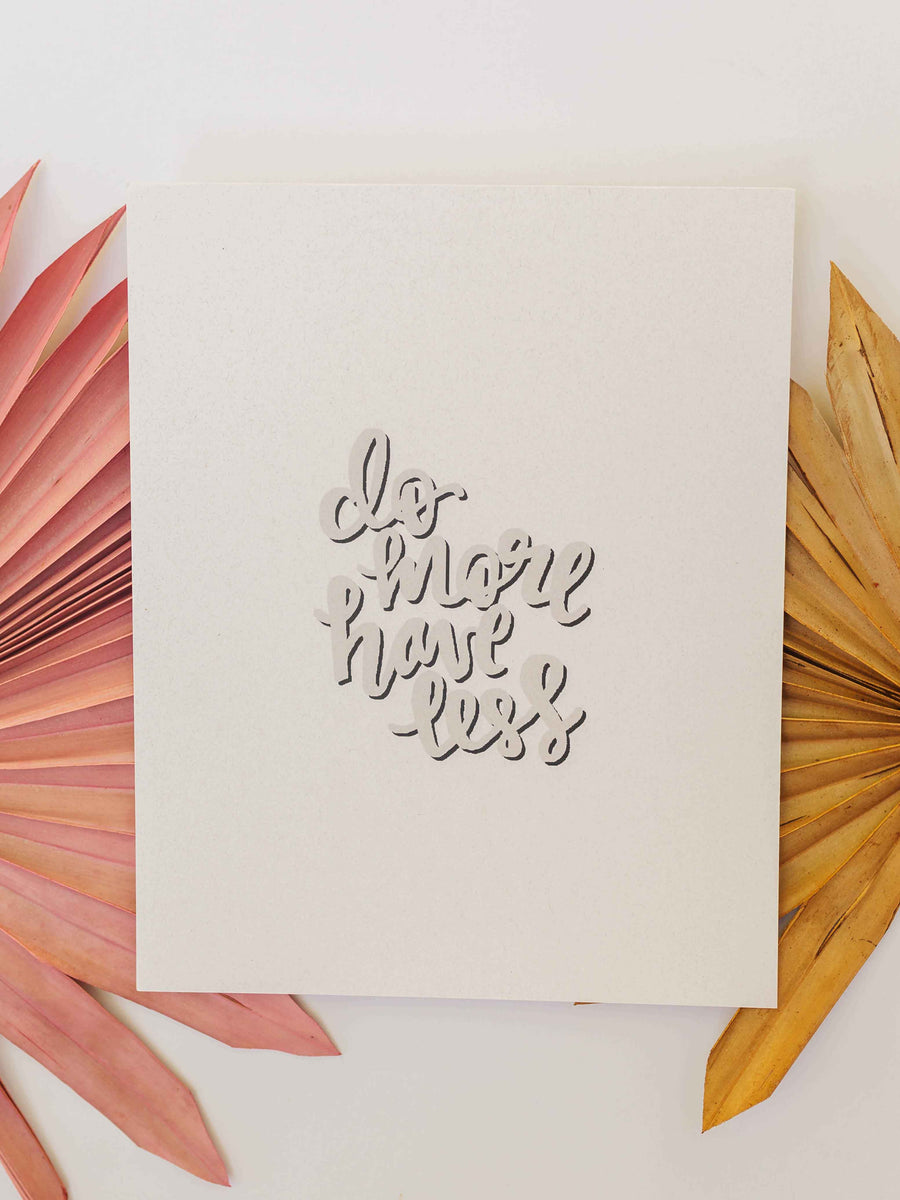 do
more
have
less